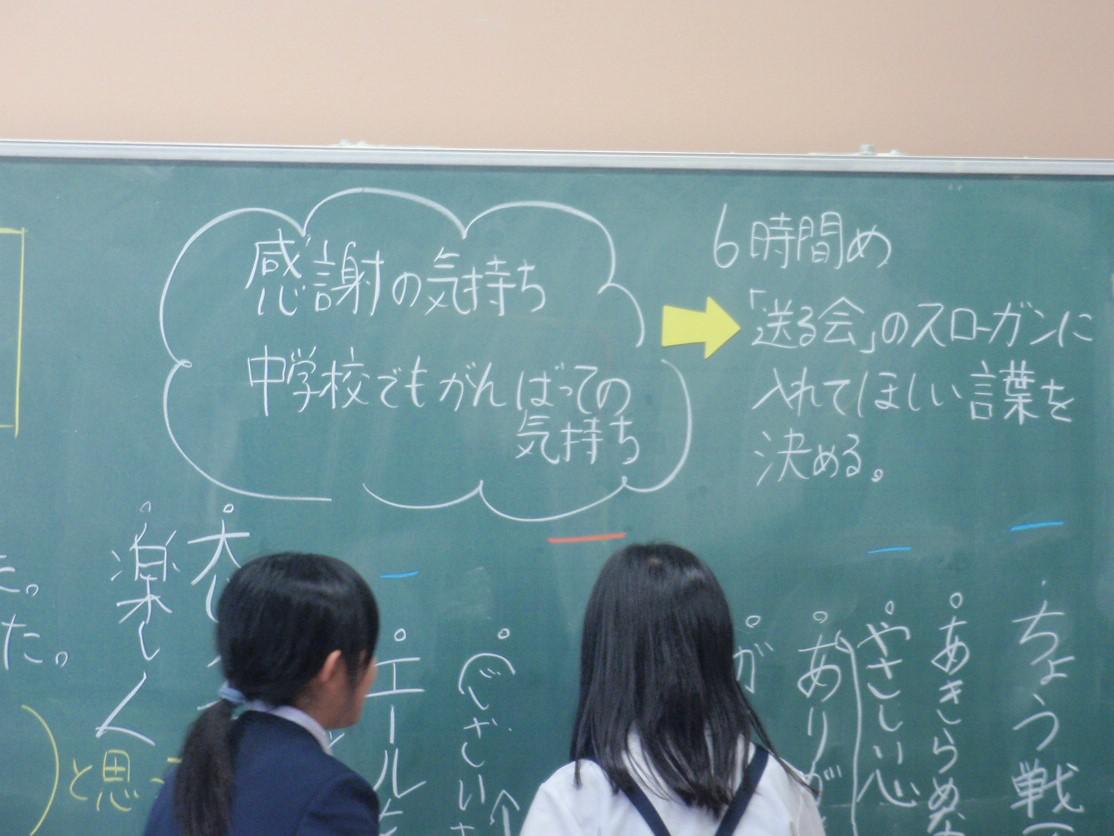 感謝の気持ち
中学校でもがんばっての
気持ち
6時間め
「送る会」のスローガンに
入れてほしい言葉を
決める。
ちょう戦
あきらめな
やさしい心
ありが
が
エール
楽し
た。
と思